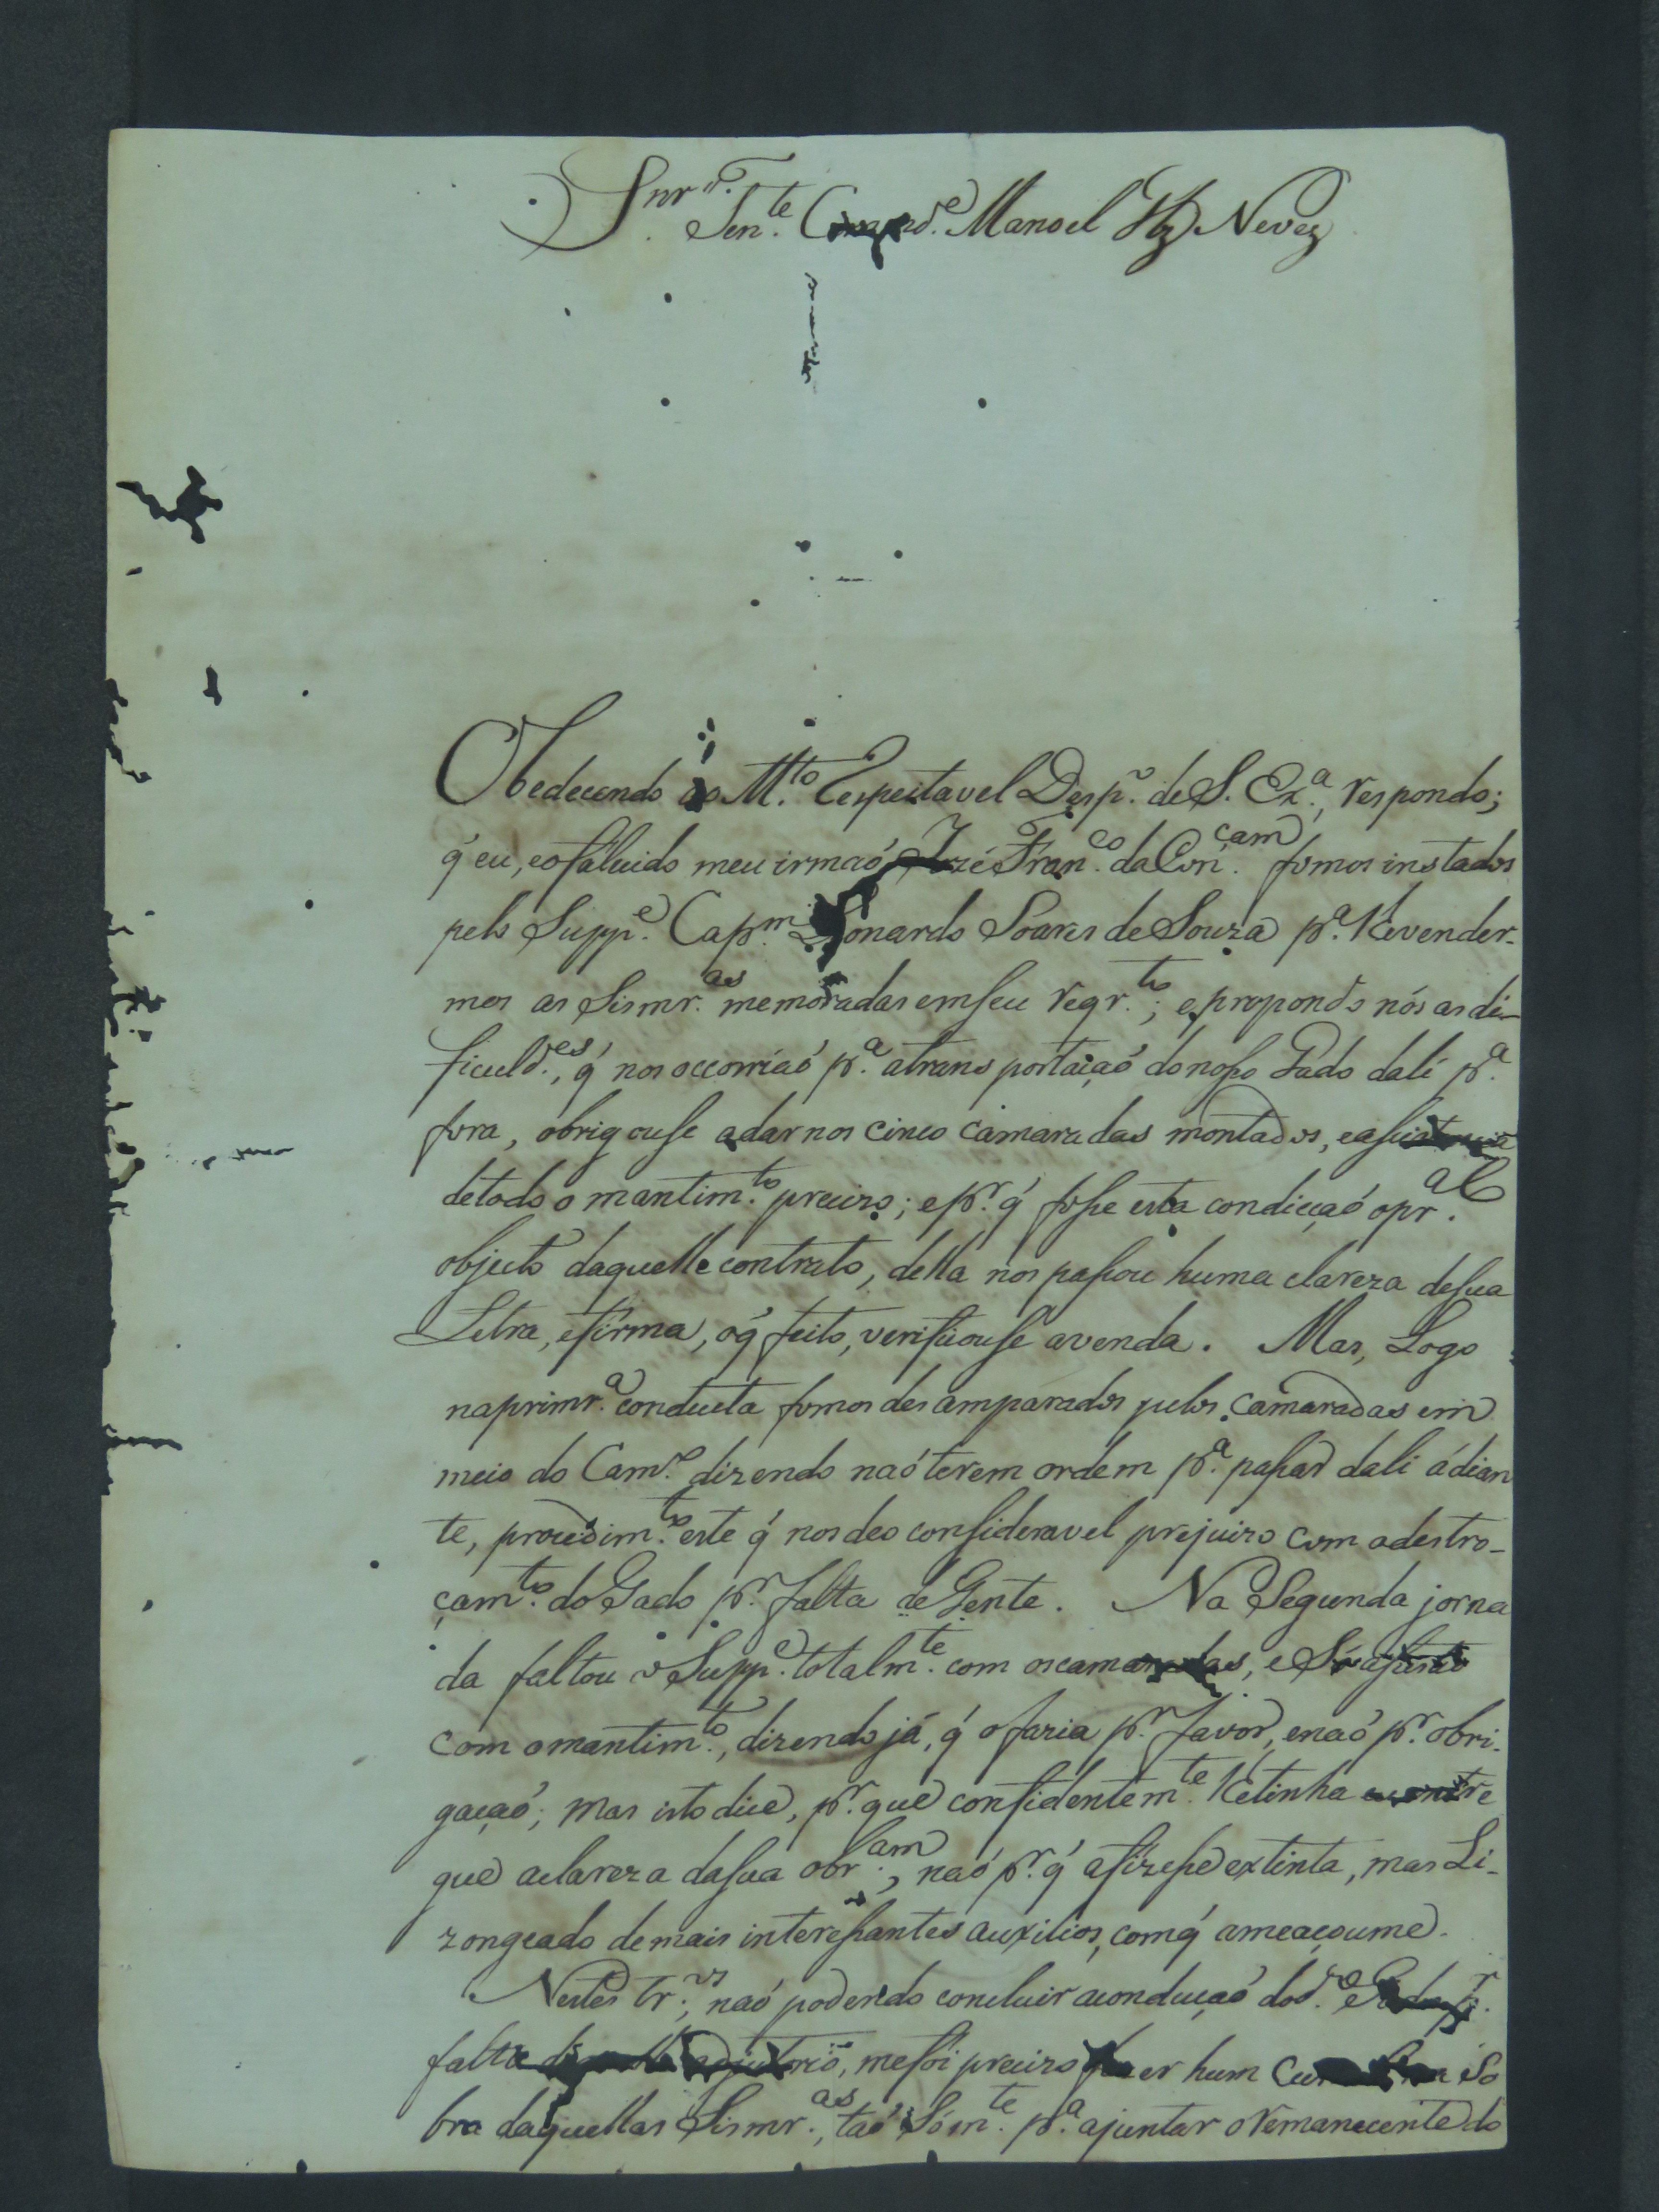 Snr. Ten.te Comand.e Manoel Glz Neves
Obedecendo ao M.to respeitavel Desp.o de S. Ex.a, respondo;
q' eu, eofalecido meu irmaõ José Fran.co da Con.çam fomos instados
pelo Supp.e Cap.m Leonardo Soares de Souza p.a Revender-
mos as Sismr.as memoradas em seu reqr.to; e propondo nós as di-
ficuld.es, q' nos occorriaõ p.a atrans portaçaõ do nosso Gado dali p.a
fora, obrigouse adar nos cinco camaradas montados, e assistencia
detodo o mantim.to preciso; ep.r q' fosse esta condicçaõ opr.al
objecto daquelle contrato, della nos passou huma clareza desua
Letra, efirma, oq' feito, verificouse avenda. Mas, Logo
naprimr.a conducta fomos des amparados pelos camaradas em
meio do Cam.o dizendo naõ terem ordem p.a passar dali ádian
te, procedim.to este q' nos deo consideravel prejuizo com adestro-
çam.to do Gado p.r falta de Gente. Na Segunda jorna
da faltou o Supp.e totalm.te com oscamaradas, e Só assistio
com omantim.to, dizendo já, q' o faria p.r favor, enaõ p.r obri-
gaçaõ; mas isto dice, p.r que confidentem.te lhetinha eu entre
gue aclareza dasua obr.am, naõ p.r q' afizesse extinta, mas Li-
zongeado demais interessantes auxilios, comq' ameaçoume.
Nestes tr.os, naõ podendo concluir aconduçaõ dod.o Gado p.r
falta adjutorio, mefoi preciso fazer hum so
bre daquellas Sismr.as, taõ Sóm.te p.a ajuntar oremanecente do